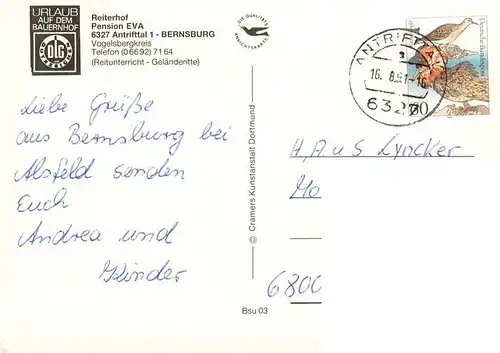 URLAUB
AUF DEM
BAUERNHOF
DLG
Reiterhof
Pension EVA
6327 Antrifttal 1 - BERNSBURG
Vogelsbergkreis
Telefon (0 66 92) 71 64
(Reitunterricht - Geländeritte)
DIE QUALITÄTS
ANSICHTSKARTE
ANTRIFTTA
16. 8.91-16
6327
60
Deutsche Bundespost
Liebe Grüße
aus Bernsburg bei
Alsfeld senden
Euch
Andrea und
Kinder
© Cramers Kunstanstalt Dortmund
Bsu 03
H, A u S Lyncker
Ma
6800